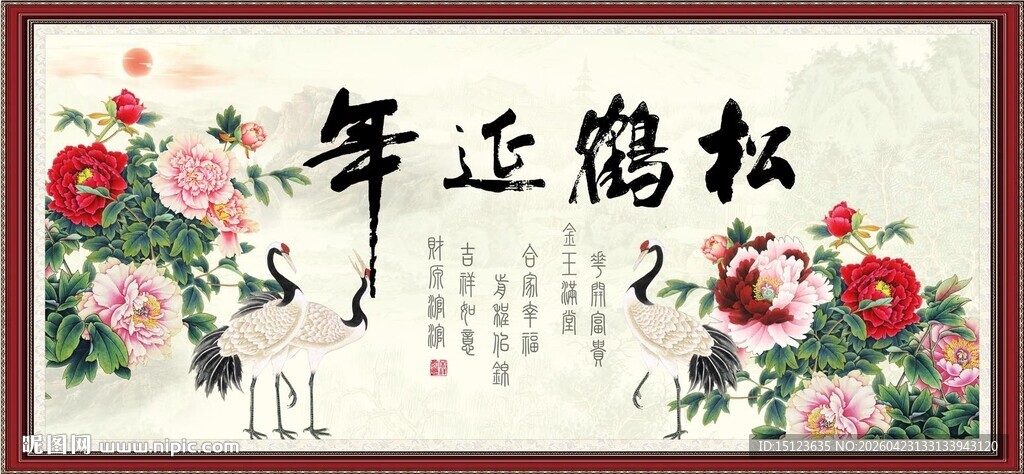 松鶴延年
華開富貴
金玉滿堂
合家幸福
前程似錦
吉祥如意
財源滾滾
昵图网 www.nipic.com
ID:15123635 NO:20260423133133943120